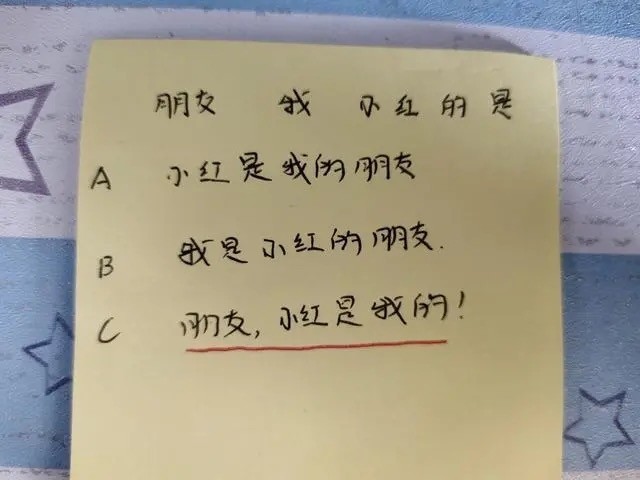 朋友 我 小红 的 是
A 小红是我的朋友
B 我是小红的朋友.
C 朋友,小红是我的!